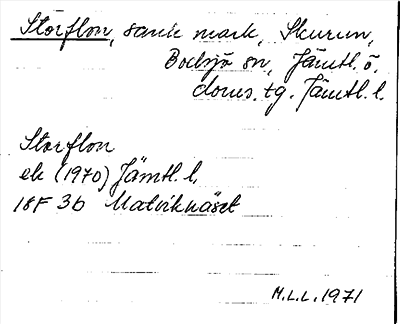 Storflon, sank mark, Skurun,
Bodsjö sn, Jämtl. ö.
doms. tg. Jämtl. l.
Storflon
ek (1970) Jämtl. l.
18F 3b Malviknäset
M.L.L. 1971